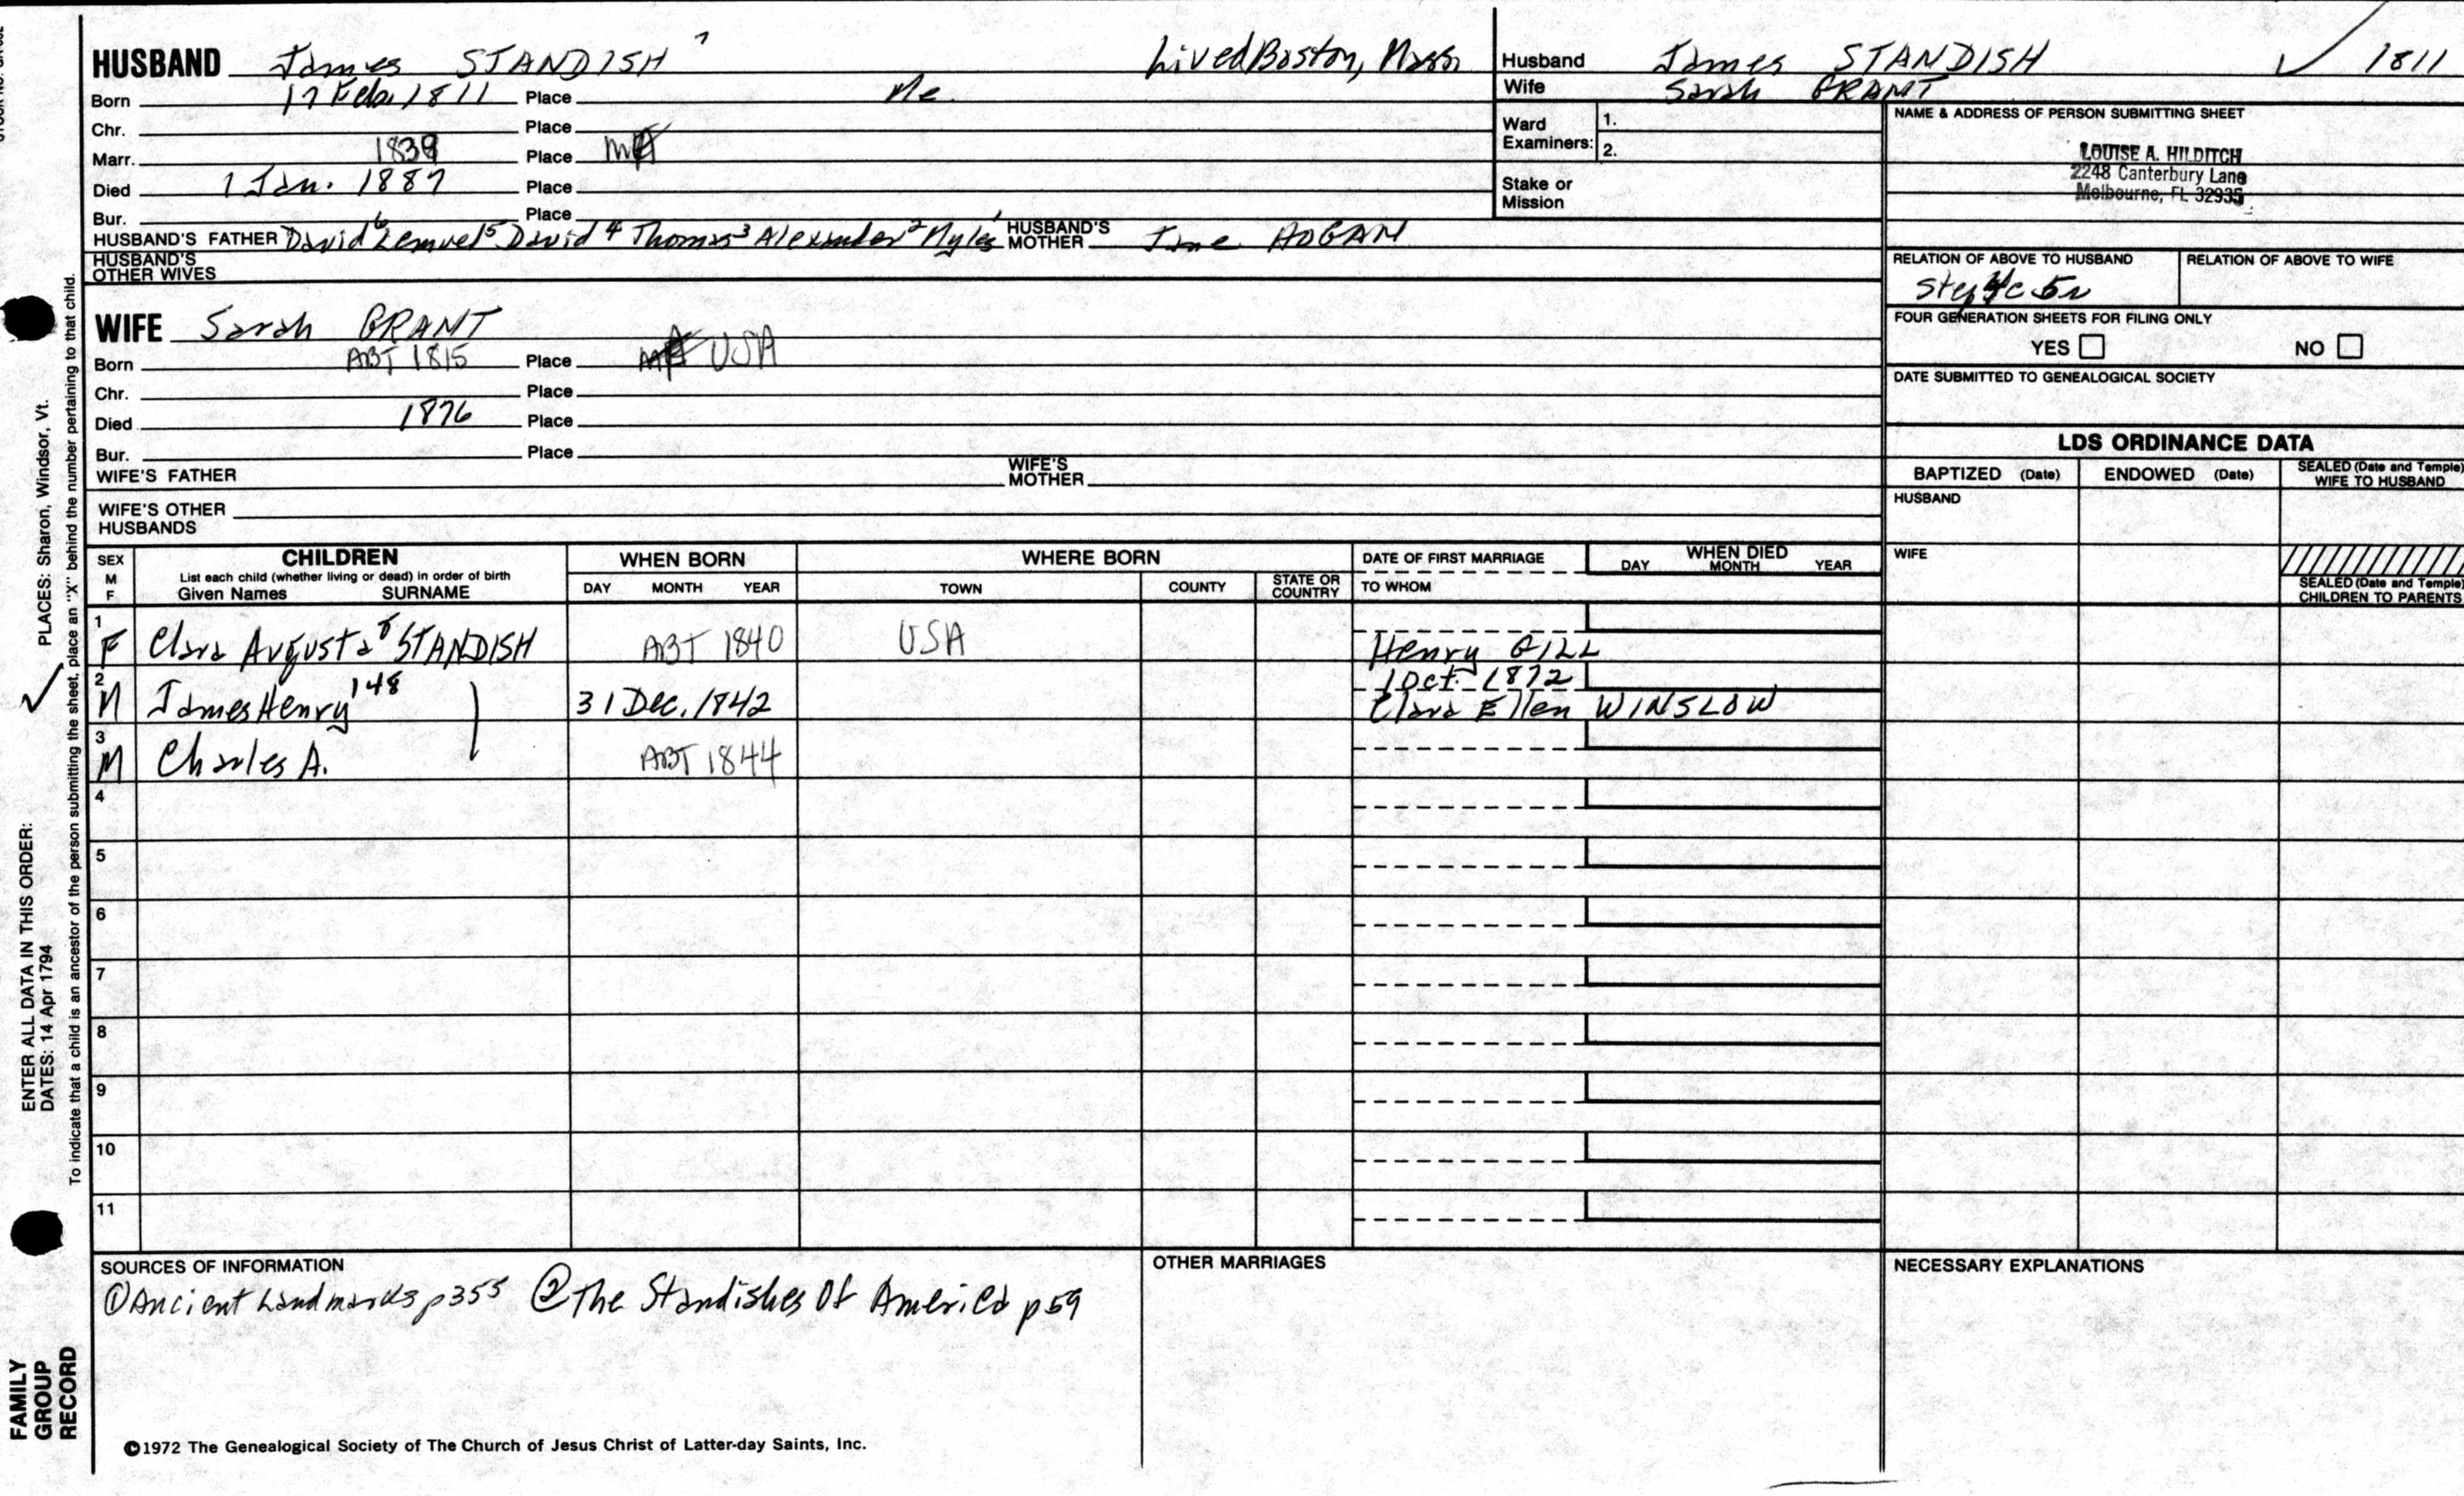 HUSBAND James STANDISH 7 Lived Boston, Mass
Born 17 Feb. 1811 Place Me.
Chr. Place
Marr. 1839 Place
Died 1 Jan. 1887 Place
Bur. Place
HUSBAND'S FATHER David 6 Lemuel 5 David 4 Thomas 3 Alexander 2 Myles 1 HUSBAND'S MOTHER Jane HOGAN
HUSBAND'S OTHER WIVES
WIFE Sarah GRANT
Born ABT 1815 Place USA
Chr. Place
Died 1876 Place
Bur. Place
WIFE'S FATHER WIFE'S MOTHER
WIFE'S OTHER HUSBANDS
Husband James STANDISH ✓ 1811
Wife Sarah GRANT
Ward Examiners: 1.
2.
Stake or Mission
NAME & ADDRESS OF PERSON SUBMITTING SHEET
LOUISE A. HILDITCH
2248 Canterbury Lane
Melbourne, FL 32935
RELATION OF ABOVE TO HUSBAND RELATION OF ABOVE TO WIFE
Step
FOUR GENERATION SHEETS FOR FILING ONLY
YES NO
DATE SUBMITTED TO GENEALOGICAL SOCIETY
LDS ORDINANCE DATA
BAPTIZED (Date) ENDOWED (Date) SEALED (Date and Temple) WIFE TO HUSBAND
HUSBAND
WIFE
SEALED (Date and Temple) CHILDREN TO PARENTS
SEX M F CHILDREN WHEN BORN WHERE BORN DATE OF FIRST MARRIAGE WHEN DIED
List each child (whether living or dead) in order of birth
Given Names SURNAME DAY MONTH YEAR TOWN COUNTY STATE OR COUNTRY TO WHOM DAY MONTH YEAR
1 F Clara Augusta 8 STANDISH ABT 1840 USA Henry GILL
2 M James Henry 148 31 Dec. 1842 1 Oct. 1872 Clara Ellen WINSLOW
3 M Charles A. ABT 1844
4
5
6
7
8
9
10
11
SOURCES OF INFORMATION
① Ancient Landmarks p355 ② The Standishes Of America p59
OTHER MARRIAGES
NECESSARY EXPLANATIONS
©1972 The Genealogical Society of The Church of Jesus Christ of Latter-day Saints, Inc.
FAMILY GROUP RECORD
ENTER ALL DATA IN THIS ORDER:
DATES: 14 Apr 1794 PLACES: Sharon, Windsor, Vt.
To indicate that a child is an ancestor of the person submitting the sheet, place an "X" behind the number pertaining to that child.